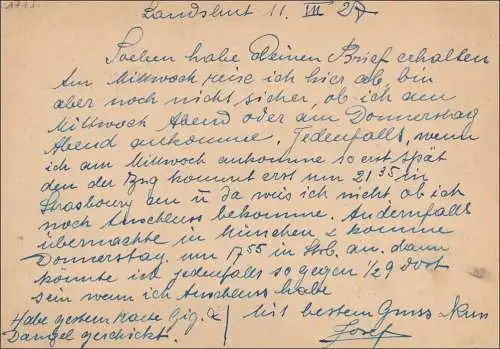 Landshut 11. III 27
Soeben habe Deinen Brief erhalten
Am Mittwoch reise ich hier ab bin
aber noch nicht sicher, ob ich am
Mittwoch Abend oder am Donnerstag
Abend ankomme. Jedenfalls, wenn
ich am Mittwoch ankomme so erst spät
den der Zug kommt erst um 21 35 in
Strasbourg an u da weis ich nicht ob ich
noch Anschluss bekomme. Andernfalls
übernachte in München & komme
Donnerstag um 17 55 in Stb. an. dann
könnte ich jedenfalls so gegen 1/2 9 dort
sein wenn ich Anschluss habe
Habe gestern Karte Zig. &
Dangel geschickt.
Mit bestem Gruss
Josef